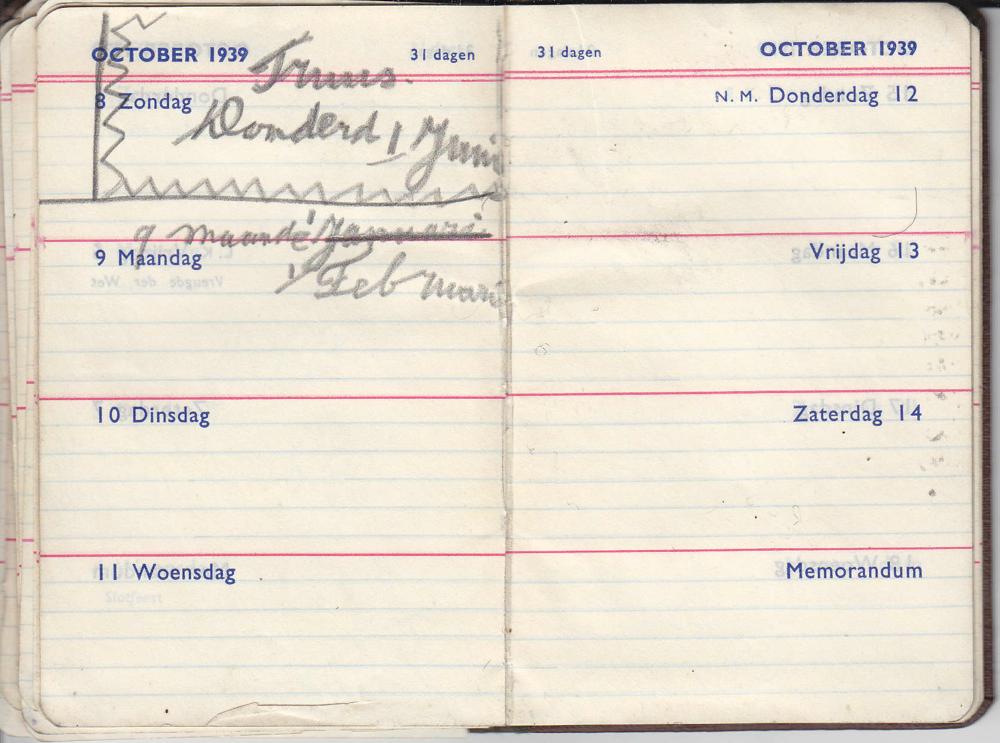 OCTOBER 1939 31 dagen
Truus.
8 Zondag
Donderd 1 Juni
9 maand Januari
9 Maandag
1 Februari
10 Dinsdag
11 Woensdag
31 dagen OCTOBER 1939
N. M. Donderdag 12
Vrijdag 13
Zaterdag 14
Memorandum